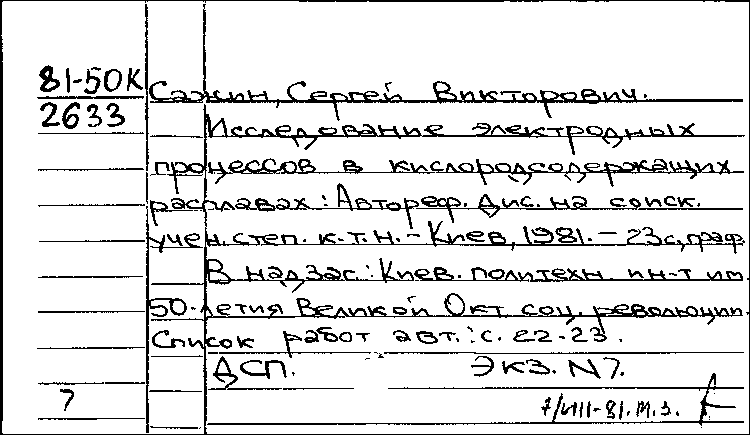 81-50К
2633
Сажин, Сергей Викторович.
Исследование электродных
процессов в кислородсодержащих
расплавах : Автореф. дис. на соиск.
учен. степ. к.т.н. - Киев, 1981. - 23с, граф
В надзаг.: Киев. политехн. ин-т им.
50-летия Великой Окт. соц. революции.
Список работ авт.: с. 22-23.
ДСП. Экз. N7.
7
7/VIII-81. М.З.